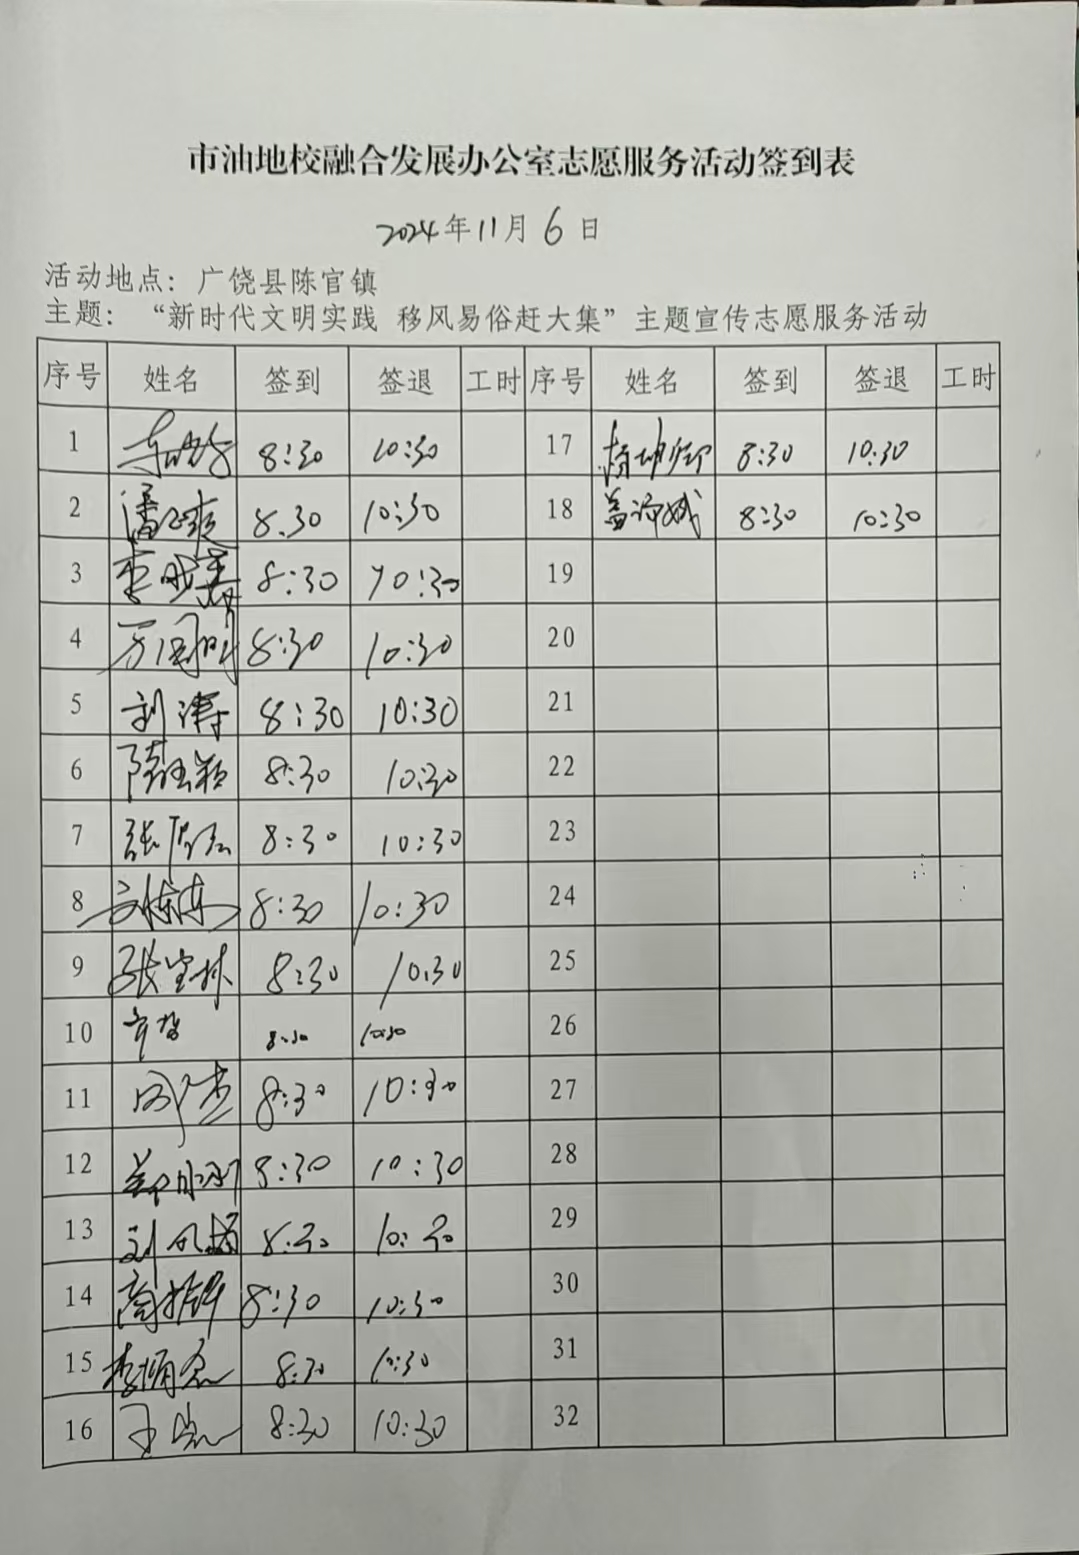 市油地校融合发展办公室志愿服务活动签到表
2024年11月6日
活动地点：广饶县陈官镇
主题：“新时代文明实践 移风易俗赶大集”主题宣传志愿服务活动
序号 姓名 签到 签退 工时 序号 姓名 签到 签退 工时
1 8:30 10:30 17 8:30 10:30
2 8.30 10:30 18 8:30 10:30
3 8:30 10:30 19
4 8:30 10:30 20
5 刘涛 8:30 10:30 21
6 8:30 10:30 22
7 8:30 10:30 23
8 8:30 10:30 24
9 张宝林 8:30 10:30 25
10 8:30 10:30 26
11 8:30 10:30 27
12 8:30 10:30 28
13 8:30 10:30 29
14 8:30 10:30 30
15 8:30 10:30 31
16 8:30 10:30 32